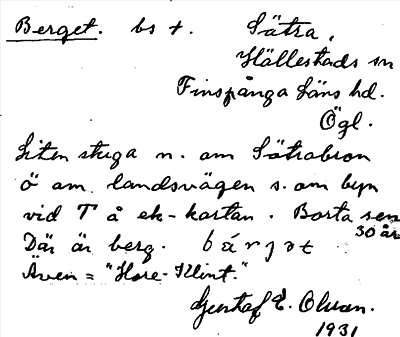 Berget. bs t. Sätra,
Hällestads sn
Finspånga läns hd.
Ögl.
Liten stuga n. om Sätrabron
ö om landsvägen s. om byn
vid T å ek-kartan. Borta sen
30 år
Där är berg. bárjət
Även = "Hore-Klint."
Gustaf E. Olsson.
1931